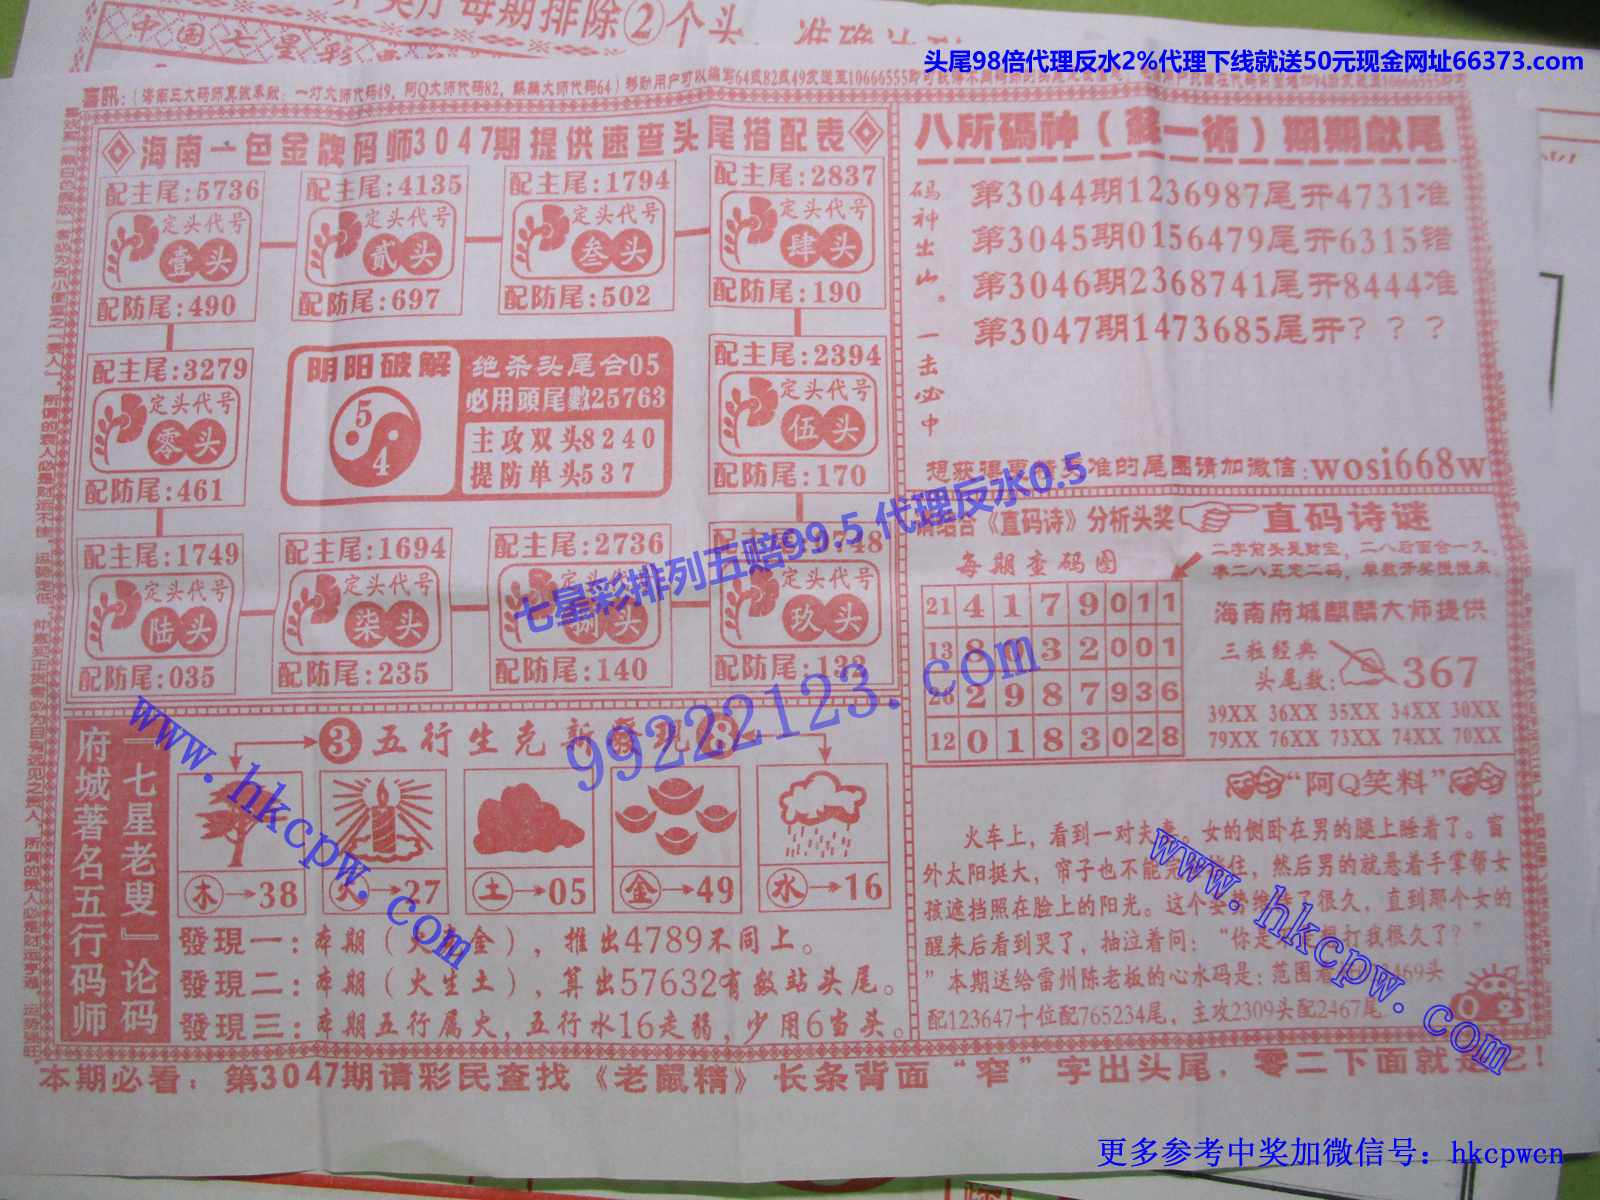 每期排除②个头
中国七星彩
头尾98倍代理反水2%代理下线就送50元现金网址66373.com
喜訊:(海南三大码师真诚奉献:一灯大师代码49,阿Q大师代码82,麒麟大师代码64)移动用户可以编写64或82或49发送至10666555即可
海南一色金牌码师3047期提供速查头尾搭配表
配主尾:5736
定头代号
壹头
配防尾:490
配主尾:4135
定头代号
贰头
配防尾:697
配主尾:1794
定头代号
叁头
配防尾:502
配主尾:2837
定头代号
肆头
配防尾:190
配主尾:3279
定头代号
零头
配防尾:461
阴阳破解
5
4
绝杀头尾合05
必用頭尾數25763
主攻双头8240
提防单头537
配主尾:2394
定头代号
伍头
配防尾:170
配主尾:1749
定头代号
陆头
配防尾:035
配主尾:1694
定头代号
柒头
配防尾:235
配主尾:2736
定头代号
捌头
配防尾:140
748
定头代号
玖头
配防尾:132
八所碼神(蘇一術)期期獻尾
码神出山。一击必中
第3044期1236987尾开4731准
第3045期0156479尾开6315错
第3046期2368741尾开8444准
第3047期1473685尾开???
的尾图请加微信:wosi668w
七星彩排列五赔99.5 代理反水0.5
99222123.com
请结合《直码诗》分析头奖
直码诗谜
每期查码图
二字前头是财宝,二八后面合一九。
零二八五定二码,单数开奖慢慢来。
21 4 1 7 9 0 1 1
13 8 0 3 2 0 0 1
26 2 9 8 7 9 3 6
12 0 1 8 3 0 2 8
海南府城麒麟大师提供
三粒经典
头尾数:367
39XX 36XX 35XX 34XX 30XX
79XX 76XX 73XX 74XX 70XX
府城著名五行码师
『七星老叟』论码
③五行生克新發現⑧
木→38
火→27
土→05
金→49
水→16
發現一:本期(火 金),推出4789不同上。
發現二:本期(火生土),算出57632有数站头尾。
發現三:本期五行属火,五行水16走弱,少用6当头。
www.hkcpw.com
“阿Q笑料”
火车上,看到一对夫妻。女的侧卧在男的腿上睡着了。窗
外太阳挺大,帘子也不能完 住,然后男的就悬着手掌帮女
孩遮挡照在脸上的阳光。这个姿势维持了很久,直到那个女的
醒来后看到哭了,抽泣着问:“你是 想打我很久了?”
”本期送给雷州陈老板的心水码是:范围看 469头
配123647十位配765234尾,主攻2309头配2467尾
www.hkcpw.com
本期必看:第3047期请彩民查找《老鼠精》长条背面“窄”字出头尾.零二下面就是它!
更多参考中奖加微信号:hkcpwcn